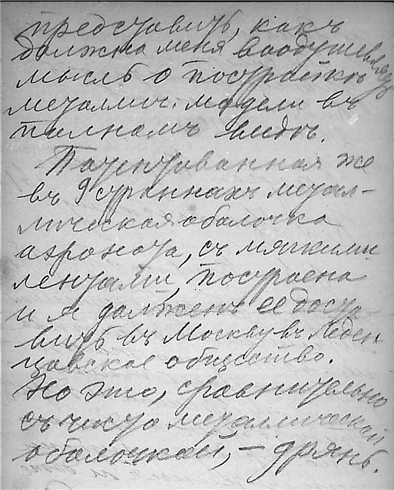 представить, какъ
должна меня воодушевлять
мысль о постройкѣ
металлич. модели въ
полномъ видѣ.
Патентованная же
въ 9 странахъ метал-
лическая оболочка
аэроната, съ мягкими
лентами, построена
и я долженъ ее доста-
вить въ Москву въ Леден-
цовское общество.
Но это, сравнительно
съ чисто металлической
оболочкой, – дрянь.